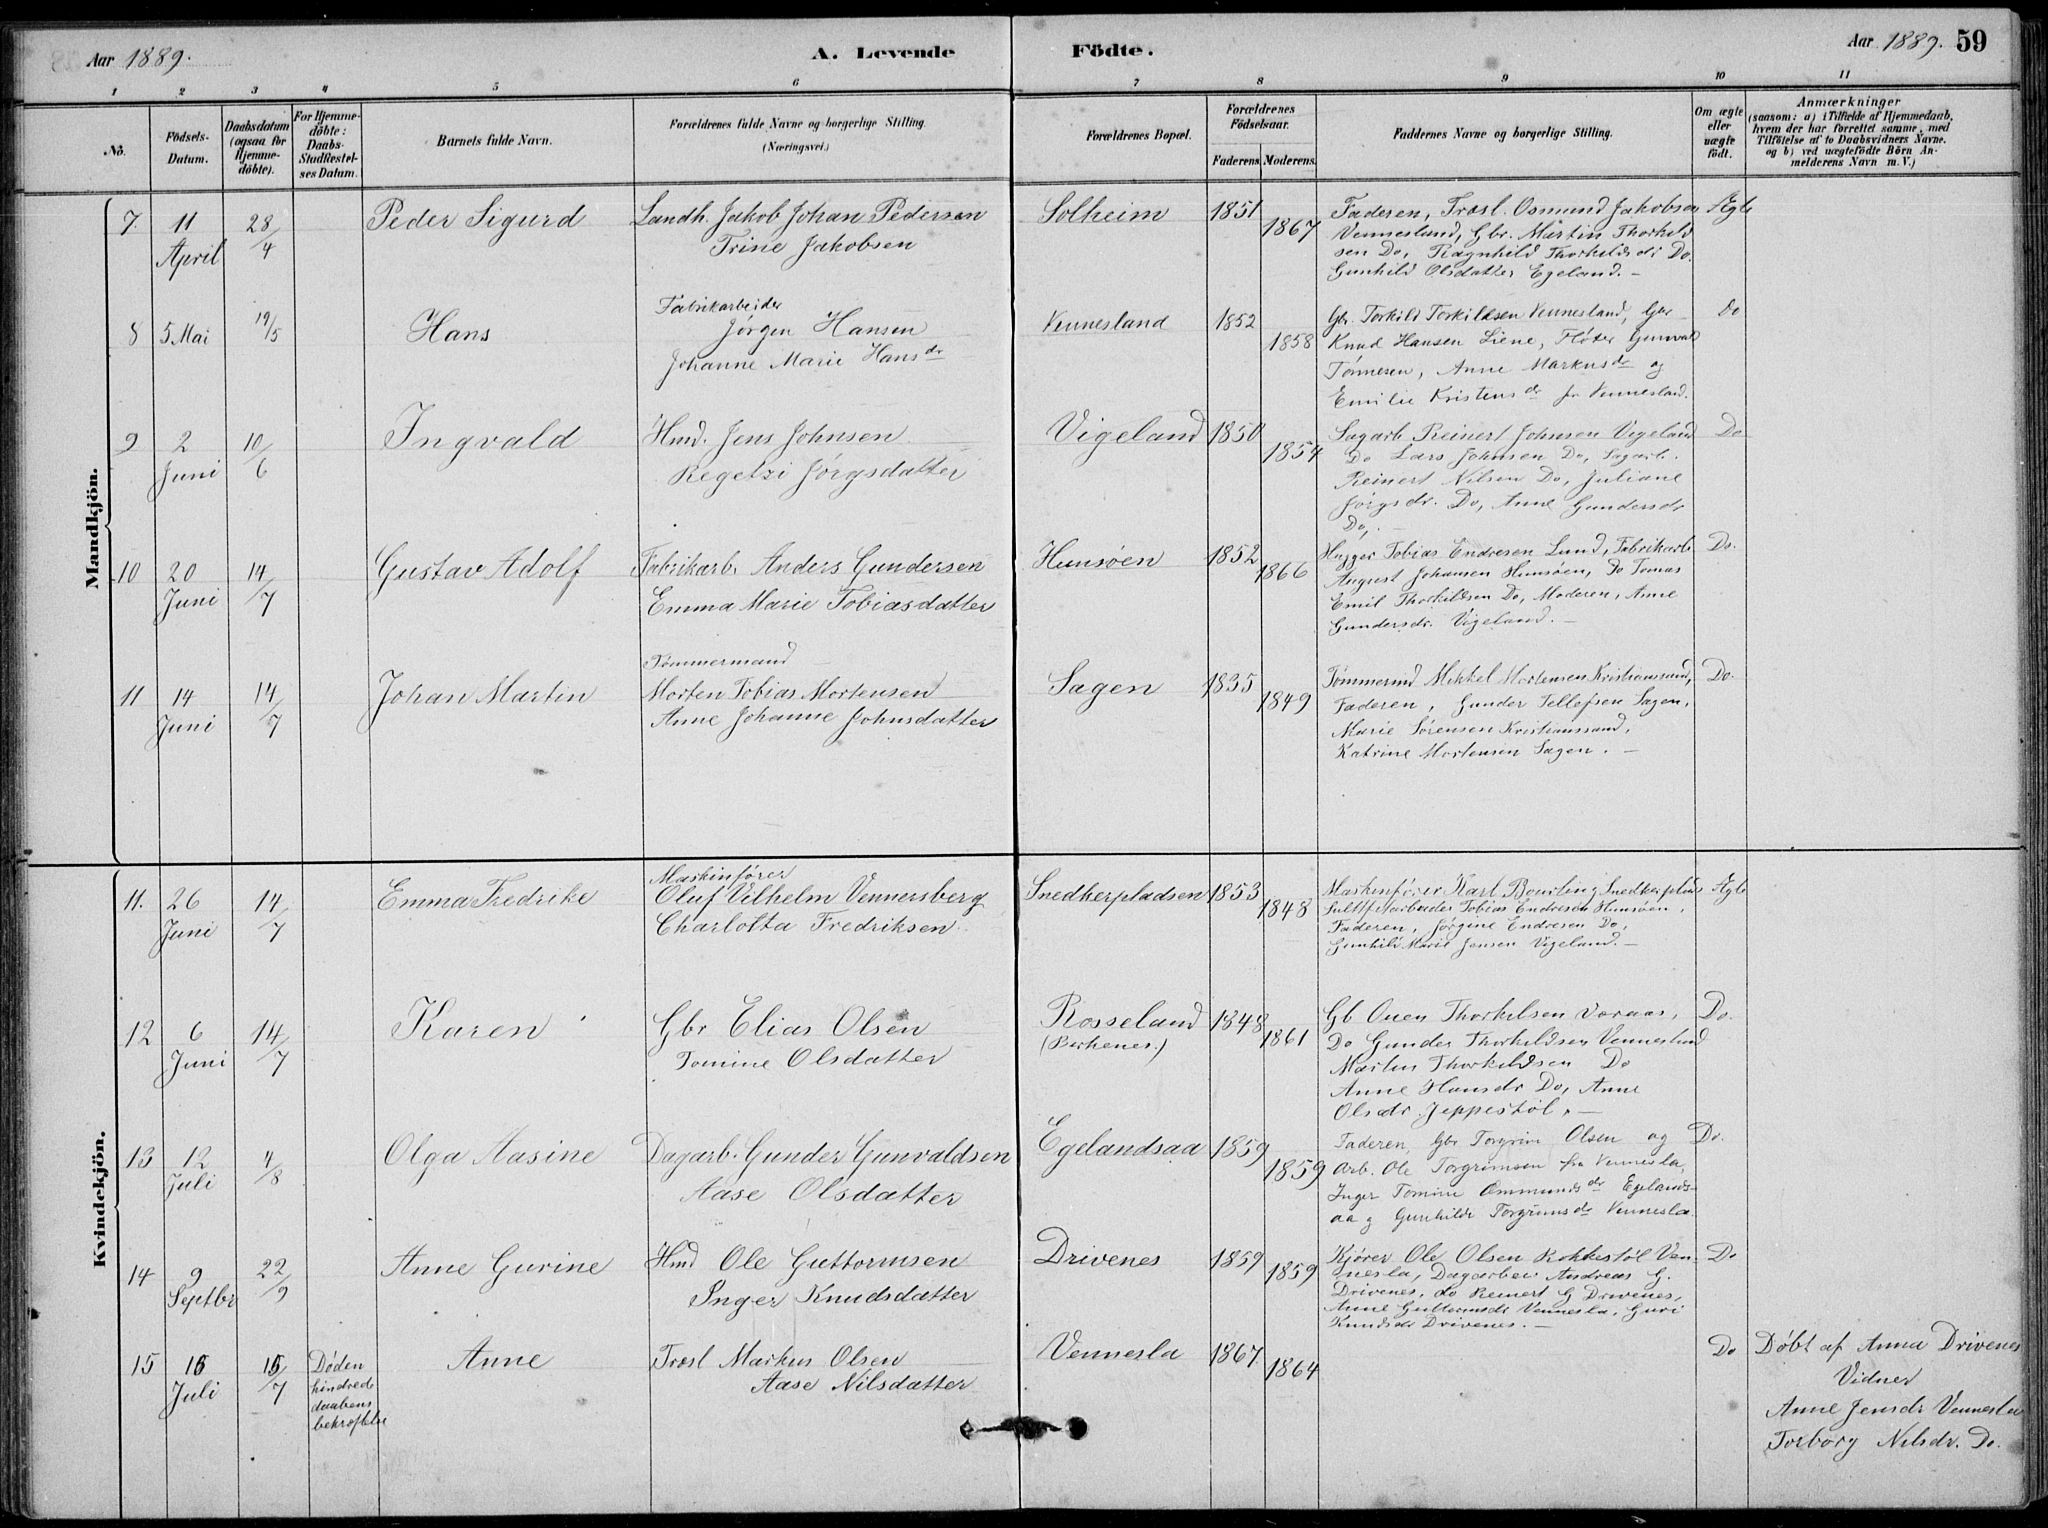 Aar 1889.
A. Levende
Födte.
Aar 1889. 59
1 2 3 4 5 6 7 8 9 10 11
No.
Födsels-Datum.
Daabsdatum (ogsaa for Hjemme-döbte).
For Hjemme-döbte: Daabs-Stadfæstel-ses Datum.
Barnets fulde Navn.
Forældrenes fulde Navne og borgerlige Stilling. (Næringsvei.)
Forældrenes Bopæl.
Forældrenes Födselsaar.
Faderens. Moderens.
Faddernes Navne og borgerlige Stilling.
Om ægte eller uægte födt.
Anmærkninger
(saasom: a) i Tilfælde af Hjemmedaab,
hvem der har forrettet samme, med
Tilföielse af to Daabsvidners Navne.
og b) ved uægtefödte Börn An-
melderens Navn m. V.)
Mandkjön.
7. 11 April 28/4
Peder Sigurd
Landh. Jakob Johan Pedersen
Trine Jakobsen
Solheim
1851
1867
Faderen, Træsl. Osmund Jakobsen
Vennesland, Gbr. Martin Thorkild
sen Do, Ragnhild Thorkildsdr Do.
Gunhild Olsdatter Egeland. –
Ægte
8 5 Mai 19/5
Hans
Fabrikarbeider
Jørgen Hansen
Johanne Marie Hansdr
Vennesland
1852
1858
Gbr. Torkild Torkildsen Vennesland, Gbr
Knud Hansen Liene, Fløter Gunvald
Tønnesen, Anne Markusdr og
Emilie Kristensdr fr Vennesland.
Do
9 2 Juni 10/6
Ingvald
Hmd. Jens Johnsen
Regetzi Jørgsdatter
Vigeland
1850
1854
Sagarb. Reinert Johnsen Vigeland
Do Lars Johnsen Do, Sagarb.
Reinert Nilsen Do, Juliane
Jørgsdr. Do, Anne Gundersdr
Do, –
Do
10 20 Juni 14/7
Gustav Adolf
Fabrikarb. Anders Gundersen
Emma Marie Tobiasdatter
Hunsøen
1852
1866
Hugger Tobias Endresen Lund, Fabrikarb
August Johansen Hunsøen, Do Tomas
Emil Thorkildsen Do, Moderen, Anne
Gundersdr. Vigeland. –
Do.
11 14 Juni 14/7
Johan Martin
Tømmermand
Morten Tobias Mortensen
Anne Johanne Johnsdatter
Sagen
1835
1849
Tømmermd Mikkel Mortensen Kristianssand,
Faderen, Gunder Tellefsen Sagen,
Marie Sørensen Kristianssand,
Katrine Mortensen Sagen. –
Do.
Kvindekjön.
11. 26 Juni 14/7
Emma Fredrike
Maskinfører
Oluf Vilhelm Vennersberg
Charlotta Fredriksen
Snedkerpladsen
1853
1848
Maskinfører Karl Bourling Snedkerplds
Tobias Endresen Hunsøen,
Faderen, Jørgine Endresen Do,
Gunhild Marie Jensen Vigeland. –
Ægte
12 6 Juni 14/7
Karen
Gbr Elias Olsen
Tomine Olsdatter
Rosseland
(Birkenes.)
1848
1861
Gb Ouen Thorkelsen Voraas,
Do Gunder Thorkildsen Vennesland
Martin Thorkildsen Do
Anne Hansdr Do, Anne
Olsdr. Jeppestøl. –
Do.
13 12 Juli 4/8
Olga Aasine
Dagarb. Gunder Gunvaldsen
Aase Olsdatter
Egelandsaa
1859
1859
Faderen, Gbr Torgrim Olsen og
Arb. Ole Torgrimsen fra Vennesla,
Inger Tomine Ommundsdr Egelands-
aa g Gunhilde Torgrimsdr Vennesla.
Do.
14 9 Septbr 22/9
Anne Gurine
Hmd Ole Guttormsen
Inger Knudsdatter
Drivenes
1859
1859
Kjører Ole Olsen Rokkestøl Ven-
nesla, Dagarbeir Andreas G.
Drivenes, do Reinert G Drivenes,
Anne Guttormsdr Vennesla, Guri
Knudsdr Drivenes. –
Do
15 15 Juli 15/7
Døden
hindrede
daabens
bekræftelse
Anne
Træsl Markus Olsen
Aase Nilsdatter
Vennesla
1867
1864
Do
Døbt af Anna Drivenes
Vidner
Anne Jensdr Vennesla
Torborg Nilsdr. Do.